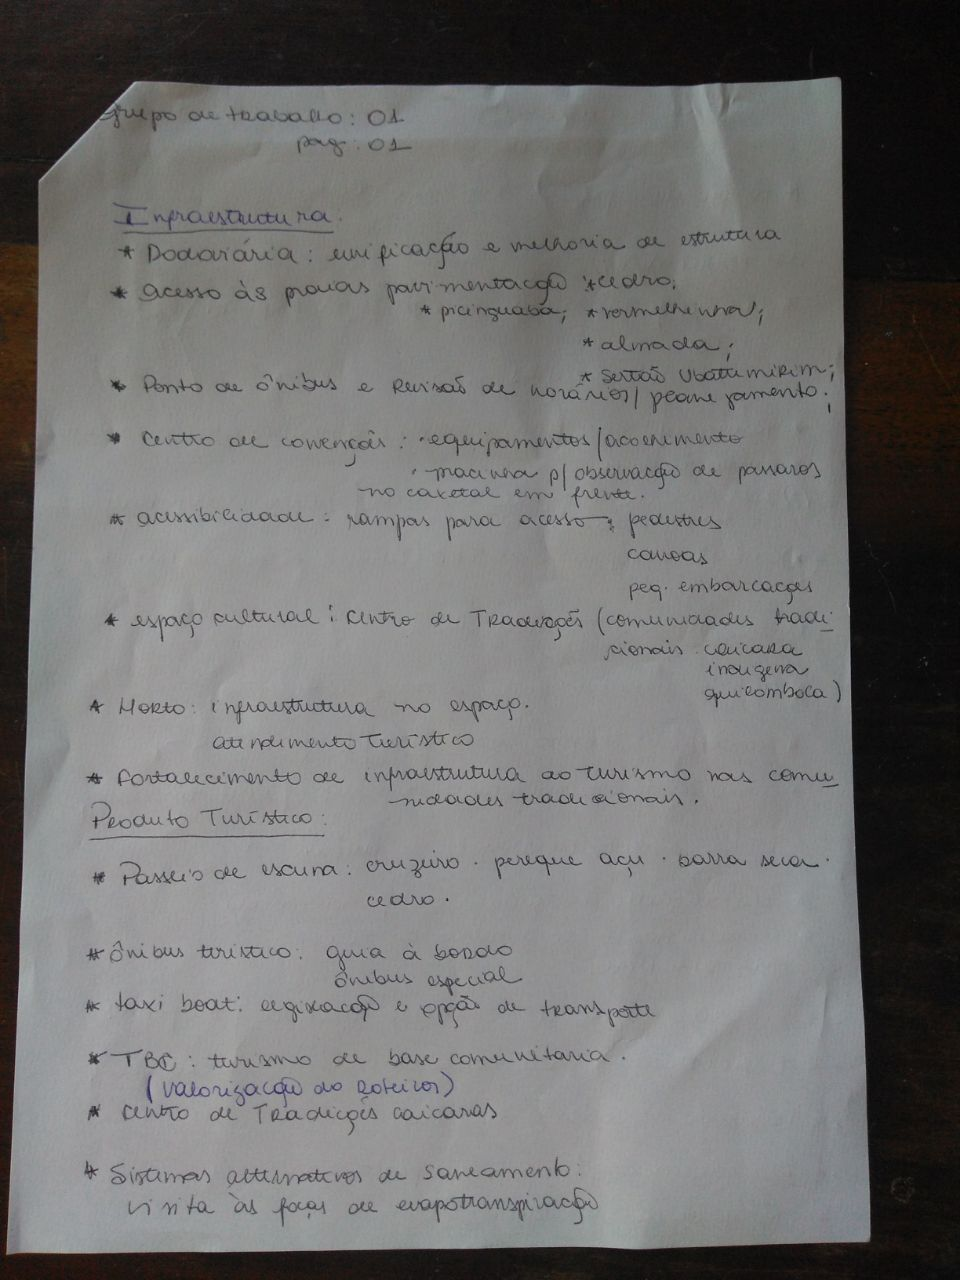 Grupo de trabalho: 01
pag: 01
Infraestrutura:
* Rodoviária: unificação e melhoria de estrutura
* acesso às praias pavimentação: * cedro;
* picinguaba; * vermelhinha;
* almada;
* Sertão Ubatumirim;
* Ponto de ônibus e Revisão de horários/planejamento;
* Centro de convenções: · equipamentos/acolhimento
· pracinha p/ observação de pássaros
no caxetal em frente.
* acessibilidade: rampas para acesso: pedestres
canoas
peq. embarcações
* espaço cultural: Centro de Tradições (comunidades tradi-
cionais caiçara
indígena
quilombola)
* Horto: infraestrutura no espaço.
atendimento Turístico
* Fortalecimento de infraestrutura ao turismo nas comu-
nidades tradicionais.
Produto Turístico:
* Passeio de escuna: cruzeiro · pereque açu · barra seca ·
cedro.
* ônibus turístico: guia à bordo
ônibus especial
* taxi boat: legislação e opção de transporte
* TBC: turismo de base comunitária.
(valorização do Roteiros)
* Centro de Tradições caiçaras
* Sistemas alternativos de saneamento:
visita às foças de evapotranspiração